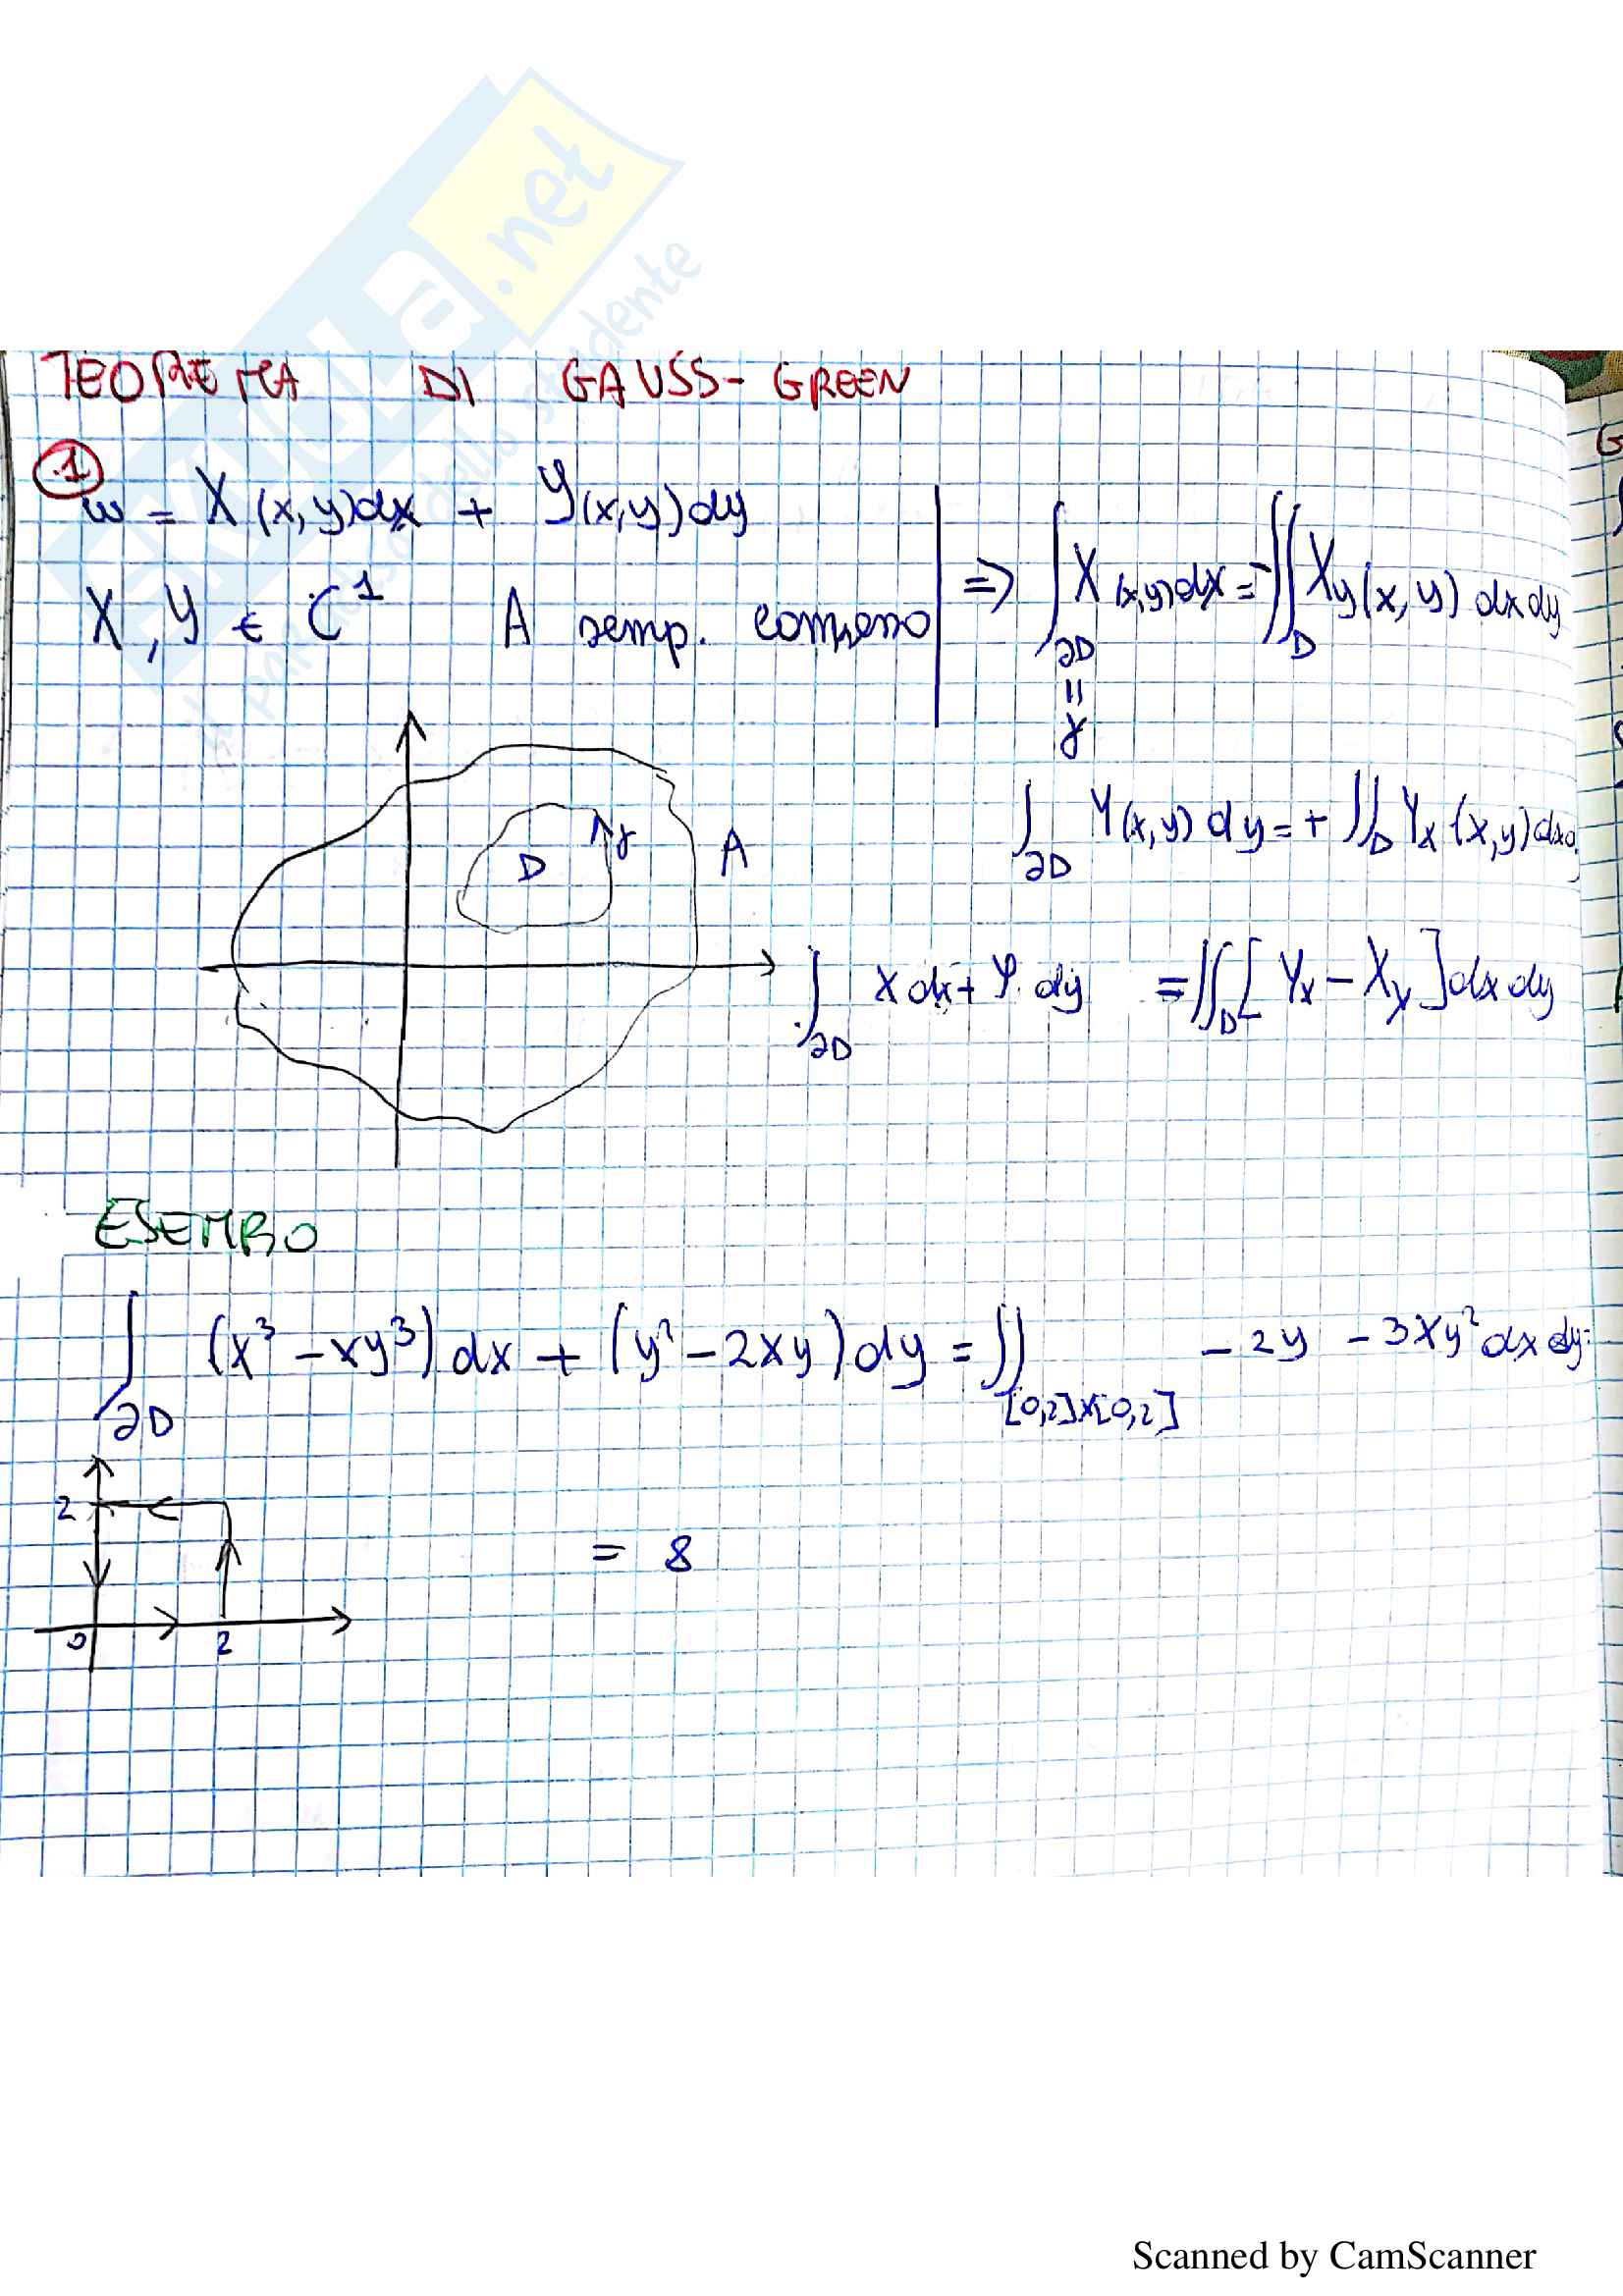 SKUOLA.net
il paradiso dello studente
TEOREMA DI GAUSS-GREEN
1
ω = X(x,y)dx + Y(x,y)dy
X, Y ∈ C¹ A semp. connesso
⇒ ∫_∂D X(x,y)dx = -∬_D X_y(x,y) dxdy
∂D = γ
∫_∂D Y(x,y) dy = + ∬_D Y_x (x,y) dxd
D γ A
∫_∂D X dx + Y dy = ∬_D [Y_x - X_y] dx dy
ESEMPIO
∫_∂D (x³ - xy³) dx + (y² - 2xy) dy = ∬_[0,2]x[0,2] - 2y - 3xy² dx dy =
2
= 8
0 2
Scanned by CamScanner